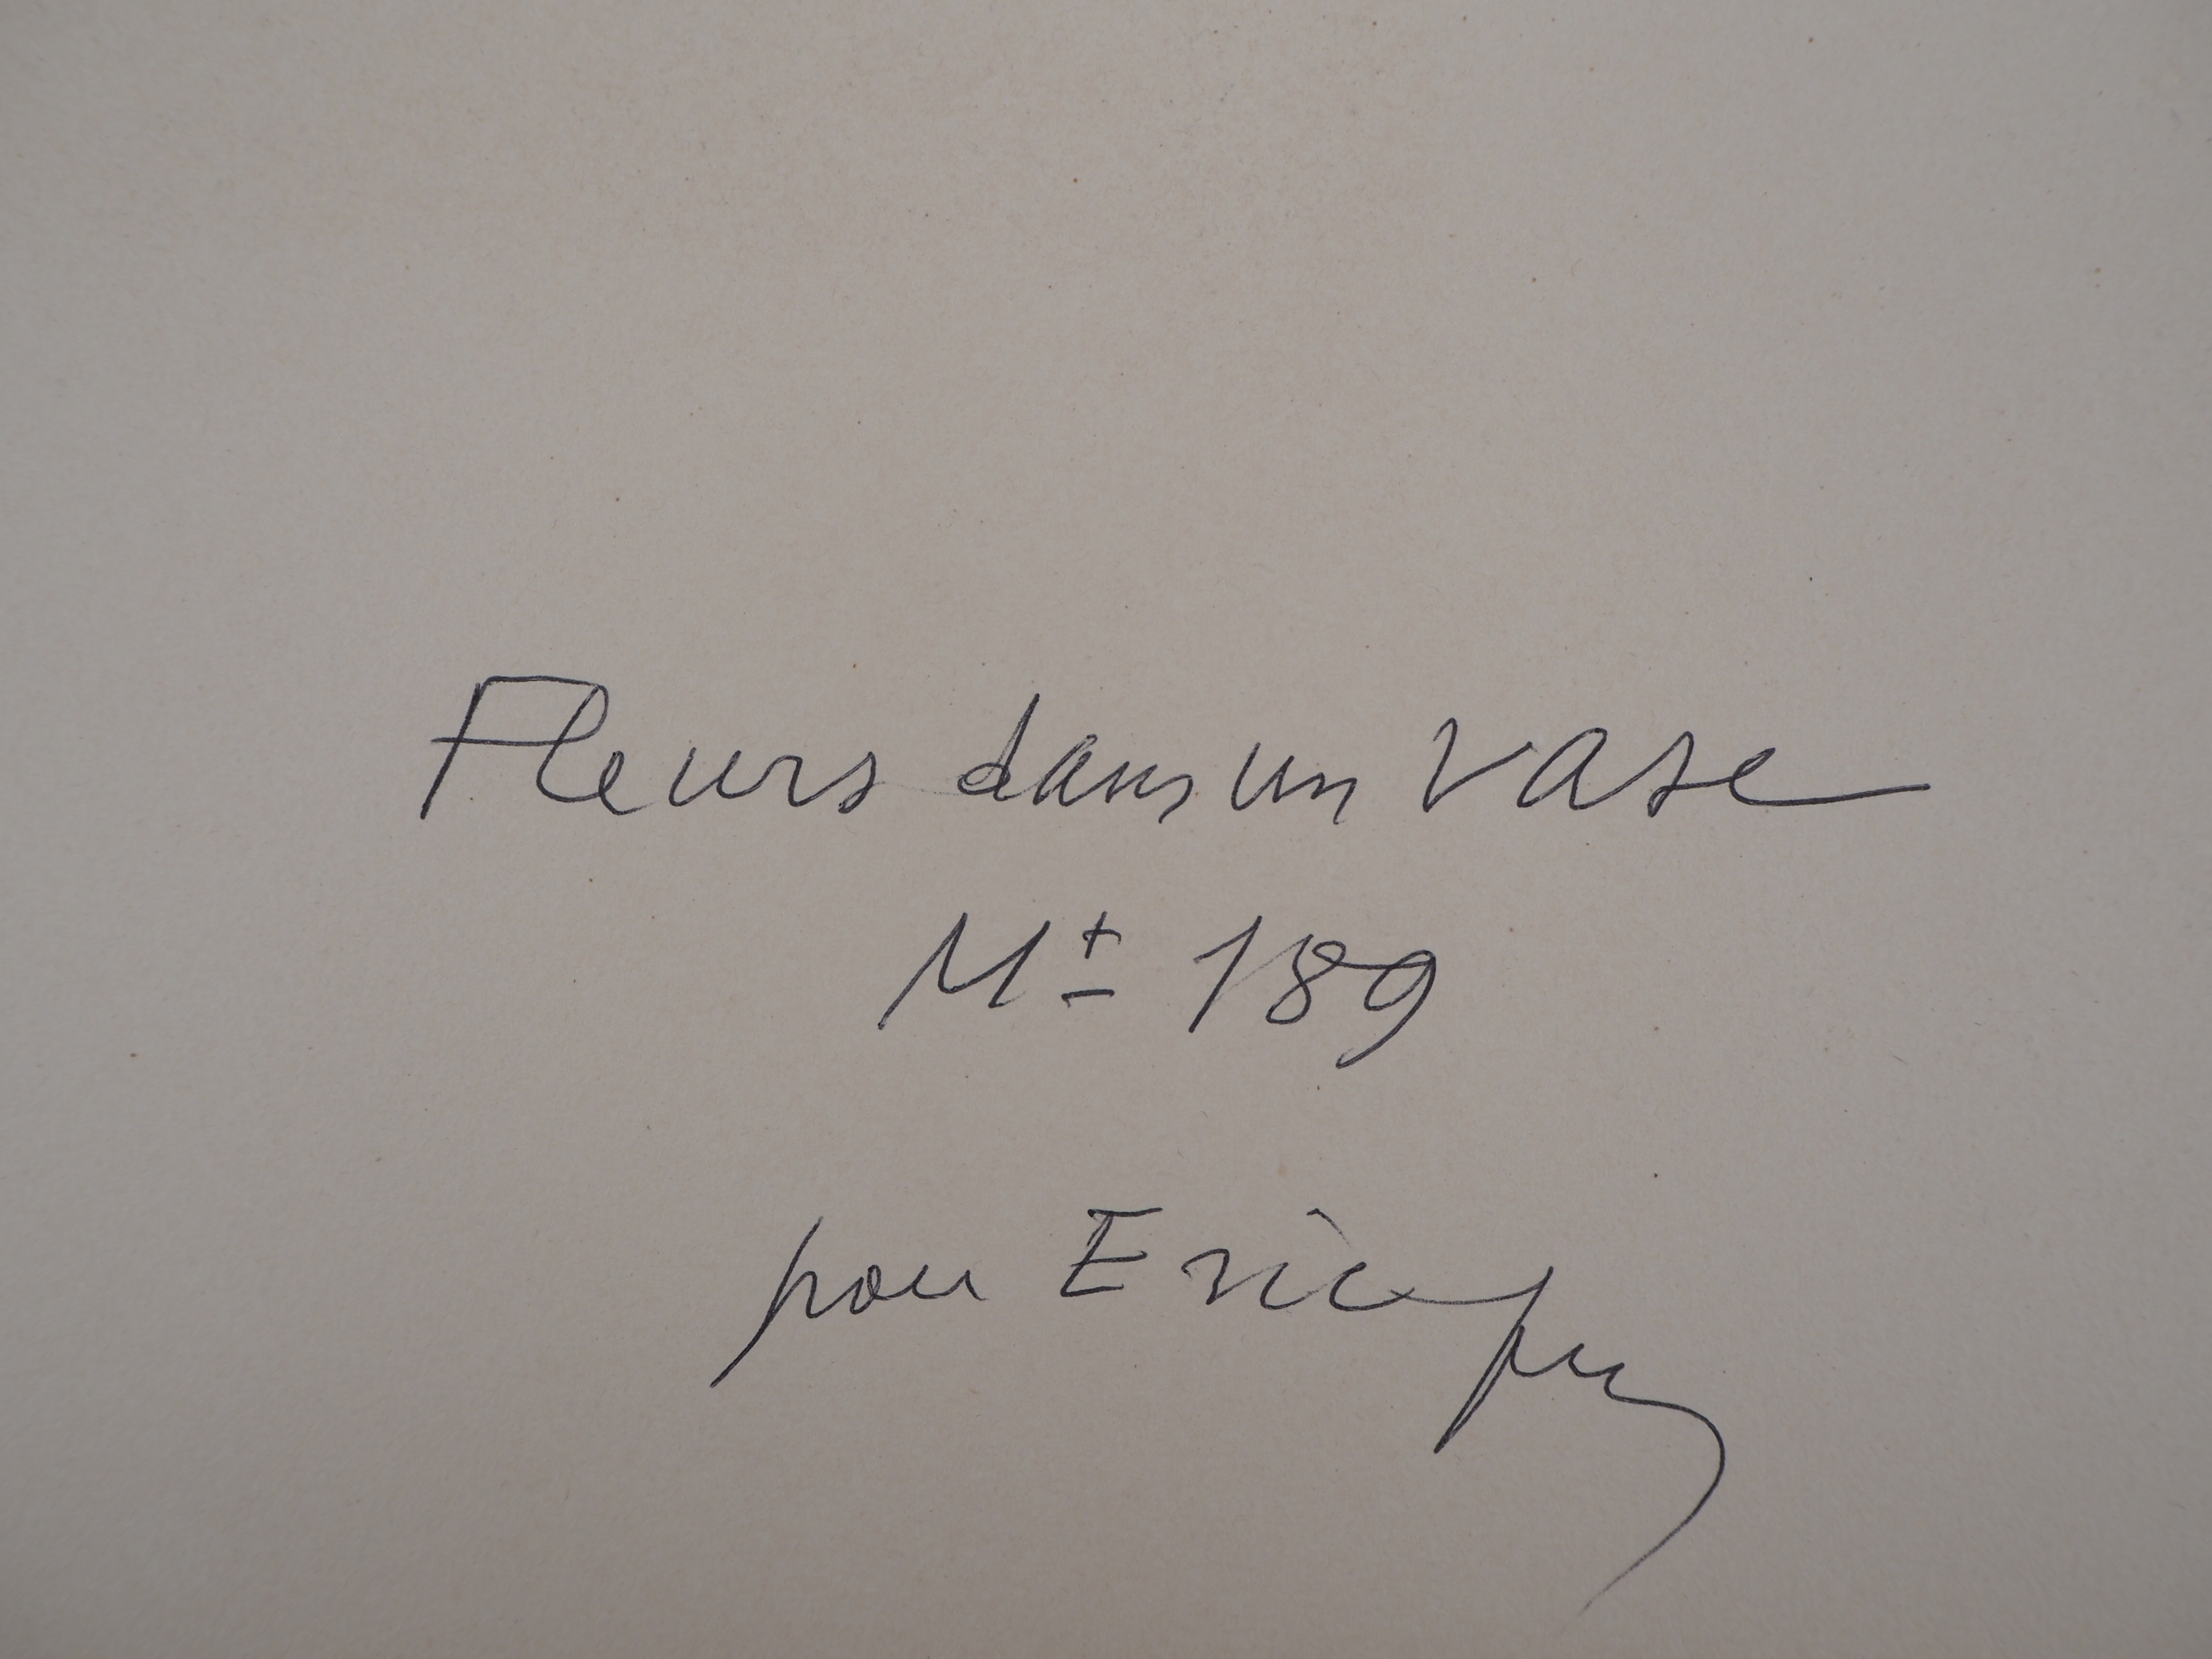 Fleurs dans un vase
M± 189
pour Eric